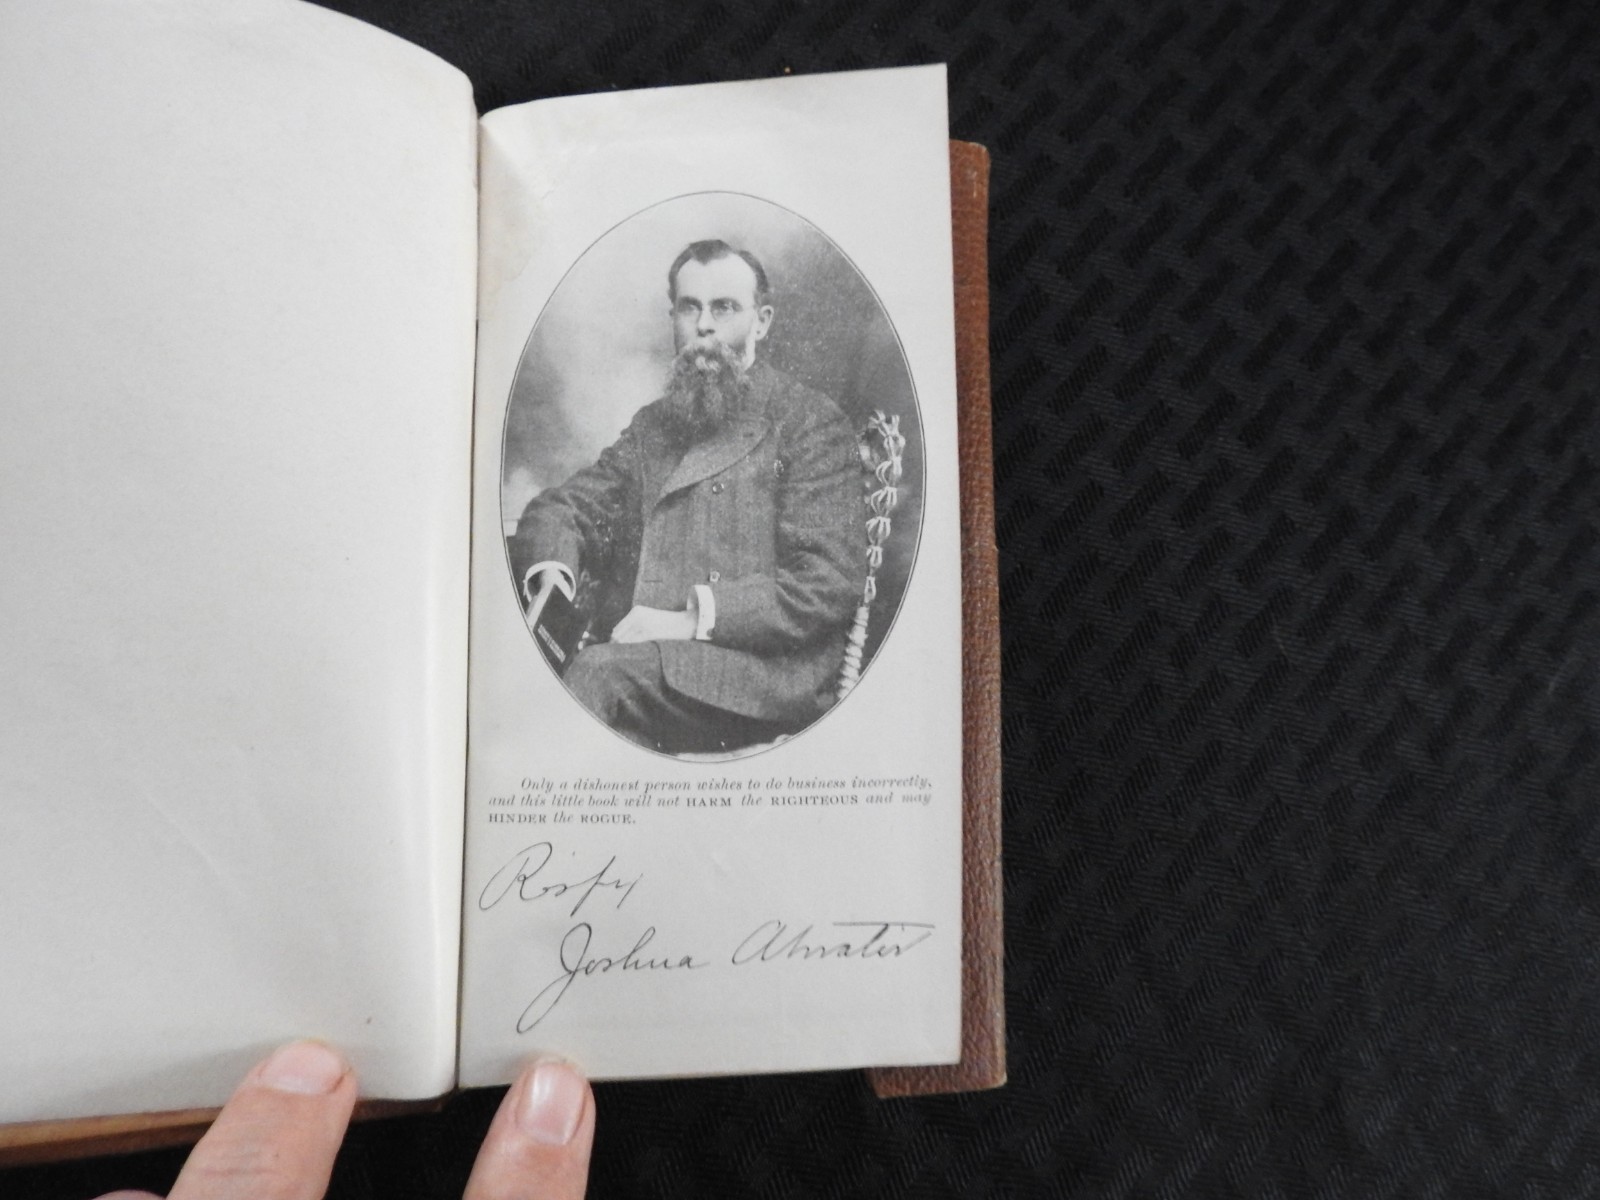 Only a dishonest person wishes to do business incorrectly,
and this little book will not HARM the RIGHTEOUS and may
HINDER the ROGUE.
Rispy
Joshua Atwater